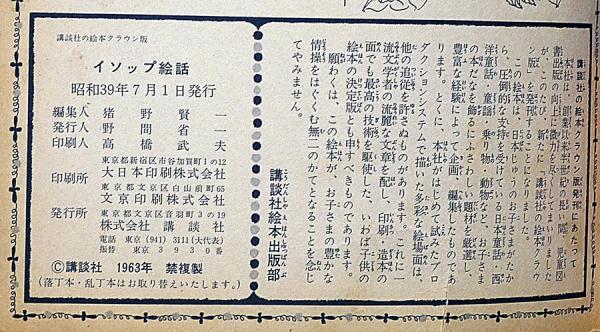 講談社の絵本クラウン版
イソップ絵話
昭和39年7月1日発行
編集人 猪野賢一
発行人 野間省一
印刷人 高橋武夫
東京都新宿区市谷加賀町1の12
印刷所 大日本印刷株式会社
東京都文京区白山前町65
文京印刷株式会社
東京都文京区音羽町3の19
発行所 株式会社 講談社
電話 東京(941)3111(大代表)
振替 東京 3930番
©講談社 1963年 禁複製
(落丁本・乱丁本はお取り替えいたします。)
講談社の絵本クラウン版発刊にあたって
本社は、創業以来半世紀の長い間、児童図
書出版の向上に微力を尽くしてまいりました
が、このたび、新たに「講談社の絵本クラウ
ン版」を発刊することになりました。
この絵本は、日本じゅうのお子さまがたか
ら、圧倒的な支持を受けている日本童話・西
洋童話・童謡・乗り物・動物など、お子さま
の本だなを飾るにふさわしい題材を厳選し、
豊富な経験によって企画、編集したものであ
ります。とくに、本社がはじめて試みたプロ
ダクションシステムで描いた多彩な絵場面は、
他の追従を許さぬものがあります。これに一
流文学者の流麗な文章を配し、印刷・造本の
面でも最高の技術を駆使した、いわば子供の
絵本の決定版とも申すべきものであります。
願わくは、この絵本が、お子さまの豊かな
情操をはぐくむ無二のかてとなることを念じ
てやみません。
講談社絵本出版部